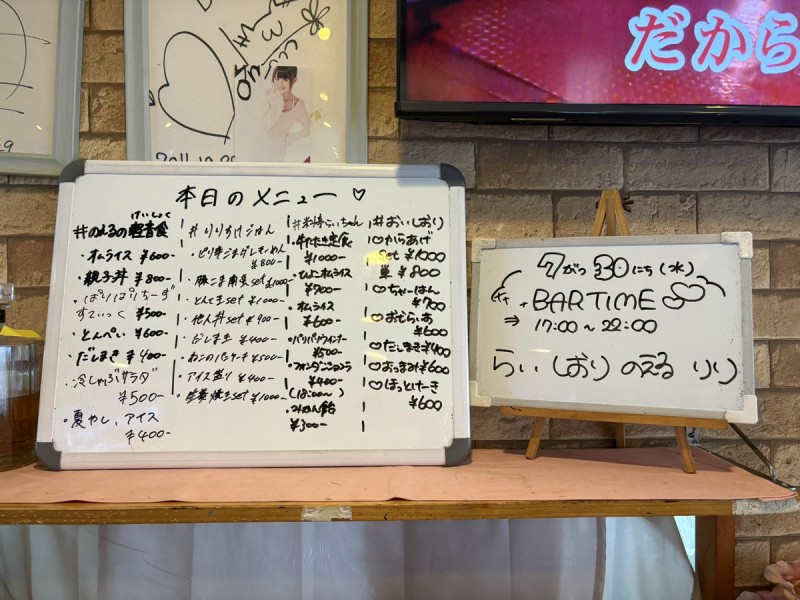 だから
本日のメニュー ♡
けいしょく
#のえるの軽食
・オムライス ¥600-
・親子丼 ¥800-
・ぱりぱりちーず
すてぃっく ¥500-
・とんぺい ¥600-
・だしまき ¥400-
・冷しゃぶサラダ
¥500-
・夏やし、アイス
¥400-
#りりすけごはん
¥800-
・豚こま南蛮set ¥1000-
・とんてきset ¥1000-
・他人丼set ¥900-
・だし玉 ¥400-
・ねこのパンケーキ ¥500-
・アイス盛り ¥400-
・生姜焼きset ¥1000-
らぃちゃん
・牛たたき定食
¥1000-
・ひよこオムライス
¥700-
・オムライス
¥600-
・パリパリウィンナー
¥500-
・フォンダンショコラ
¥400-
・みかん飴
¥300-
#おいしおり
♡からあげ
Set ¥1000
単 ¥800
♡ちゃーはん
¥700
♡おむらいす
¥600
♡だしまき¥400
♡おつまみ¥600
♡ほっとけーき
¥600
7がつ30にち(水)
BARTIME
⇒ 17:00~22:00
らぃ しおり のえる りり